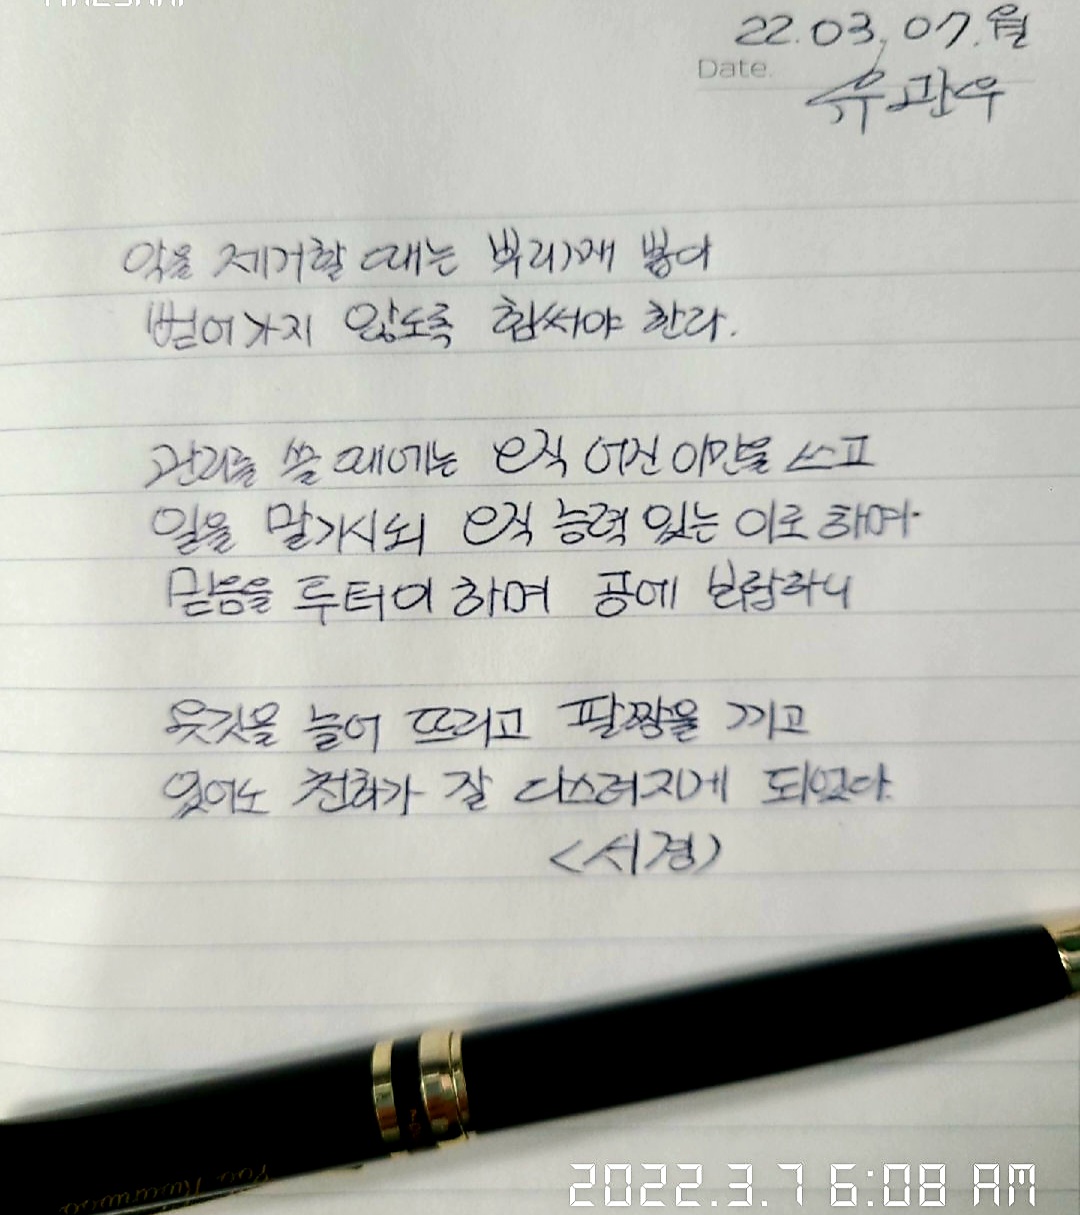 22.03.07.월
Date.
유관우
악을 제거할 때는 뿌리째 뽑아
벋어가지 않도록 힘써야 한다.
관리를 쓸 때에는 오직 어진이만을 쓰고
일을 맡기시되 오직 능력 있는 이로 하며
믿음을 두터이 하며 공에 보답하니
옷깃을 늘어 뜨리고 팔짱을 끼고
있어도 천하가 잘 다스려지게 되었다.
<서경>
2022.3.7 6:08 AM